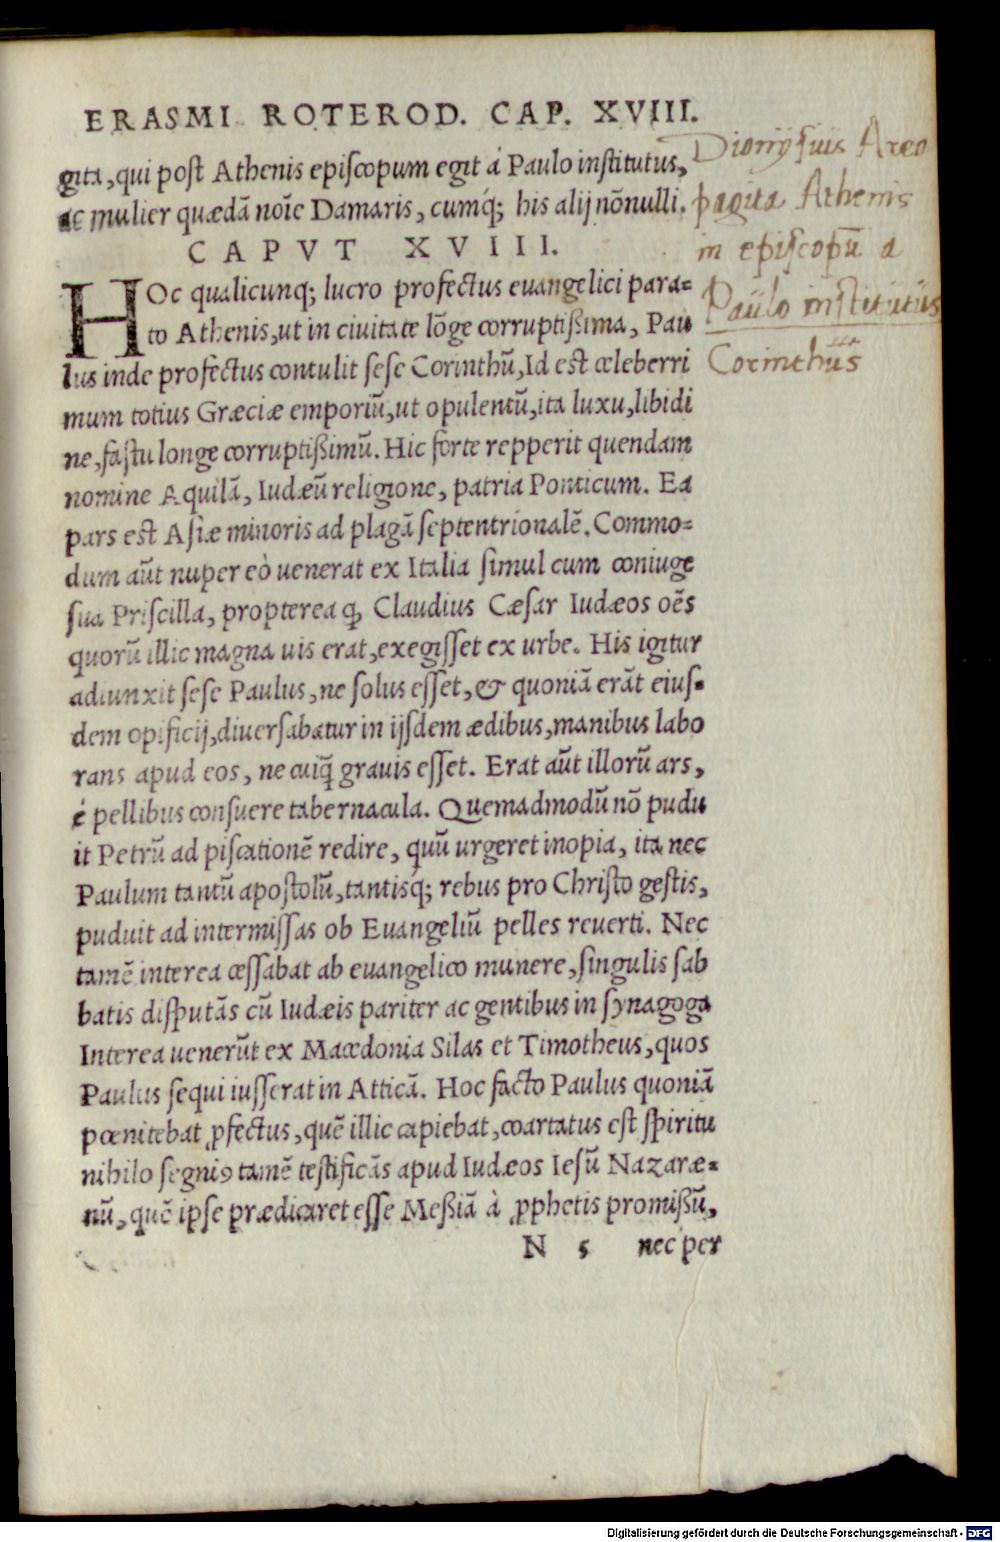 ERASMI ROTEROD. CAP. XVIII.
gita, qui post Athenis episcopum egit á Paulo institutus,
ac mulier quædã noĩe Damaris, cumq́; his alij nõnulli.
CAPVT XVIII.
HOc qualicunq; lucro profectus euangelici para-
to Athenis, ut in ciuitate lõge corruptißima, Pau
lus inde profectus contulit sese Corinthũ, Id est celeberri
mum totius Græciæ emporiũ, ut opulentũ, ita luxu, libidi
ne, fastu longe corruptißimũ. Hic forte repperit quendam
nomine Aquilã, Iudæũ religione, patria Ponticum. Ea
pars est Asiæ minoris ad plagã septentrionalẽ. Commo-
dum aũt nuper eò uenerat ex Italia simul cum coniuge
sua Priscilla, propterea ꝙ Claudius Cæsar Iudæos oẽs
quorũ illic magna uis erat, exegisset ex urbe. His igitur
adiunxit sese Paulus, ne solus esset, & quoniã erãt eius-
dem opificij, diuersabatur in ijsdem ædibus, manibus labo
rans apud eos, ne cuiq̃ grauis esset. Erat aũt illorũ ars,
é pellibus consuere tabernacula. Quemadmodũ nõ pudu
it Petrũ ad piscationẽ redire, quũ urgeret inopia, ita nec
Paulum tantũ apostolũ, tantisq́; rebus pro Christo gestis,
puduit ad intermissas ob Euangeliũ pelles reuerti. Nec
tamẽ interea cessabat ab euangelico munere, singulis sab
batis disputãs cũ Iudæis pariter ac gentibus in synagoga
Interea uenerũt ex Macedonia Silas et Timotheus, quos
Paulus sequi iusserat in Atticã. Hoc facto Paulus quoniã
pœnitebat ꝓfectus, quẽ illic capiebat, coartatus est spiritu
nihilo segniꝰ tamẽ testificãs apud Iudæos Iesũ Nazaræ-
nũ, quẽ ipse prædicaret esse Meßiã à ꝓphetis promißũ,
N 5 nec per
Dionysius Areo
pagita Athenis
in episcopũ a
Paulo institutus
Corinthus
Digitalisierung gefördert durch die Deutsche Forschungsgemeinschaft - DFG